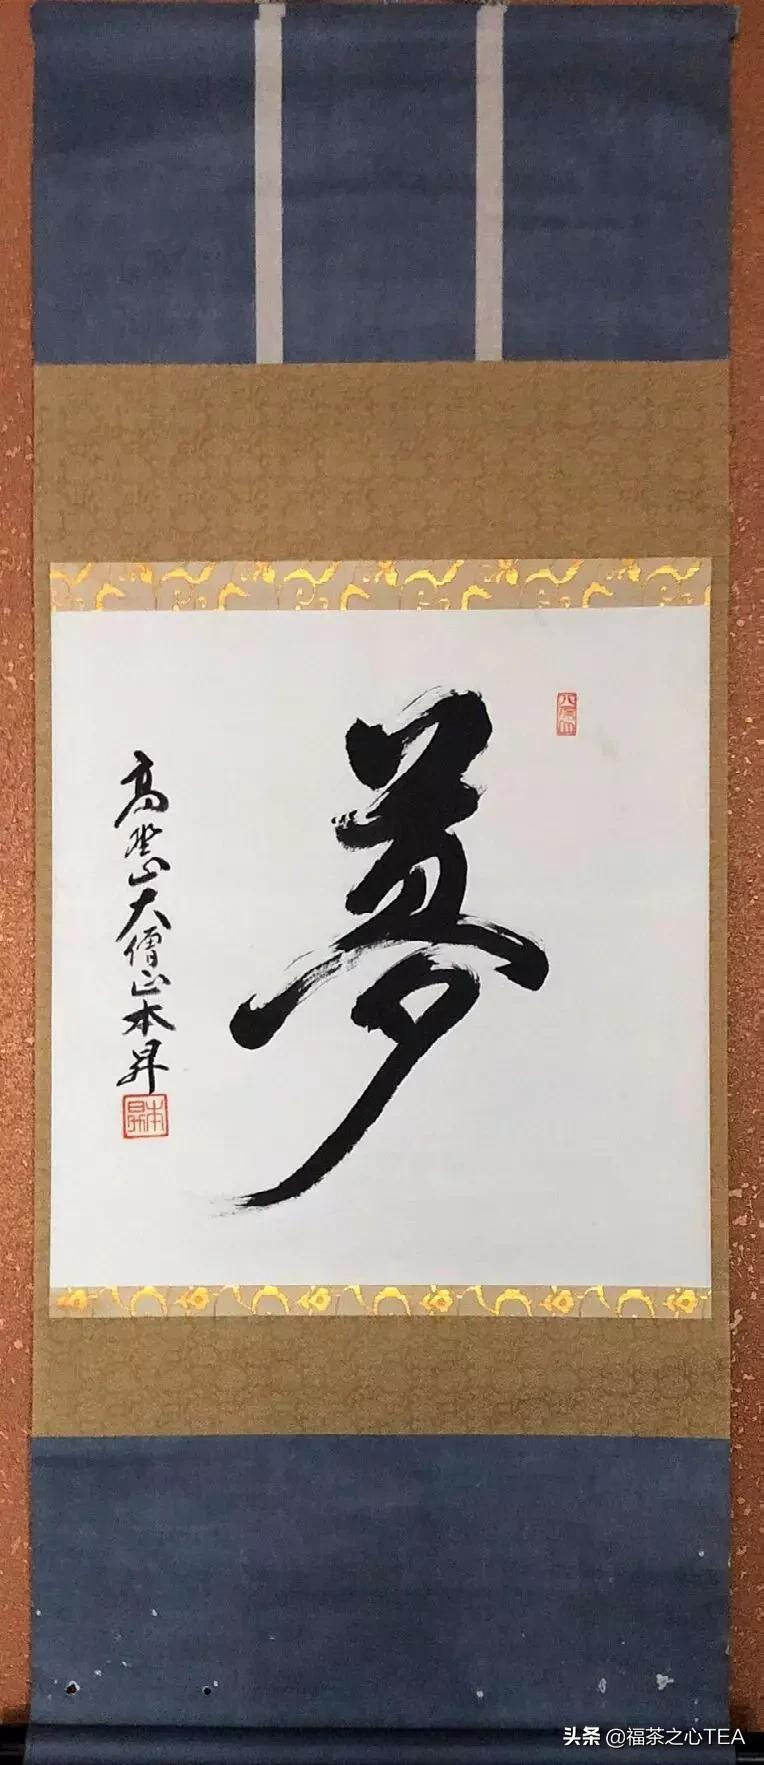 夢
高埜山大僧正本昇
本昇
头条 @福茶之心TEA